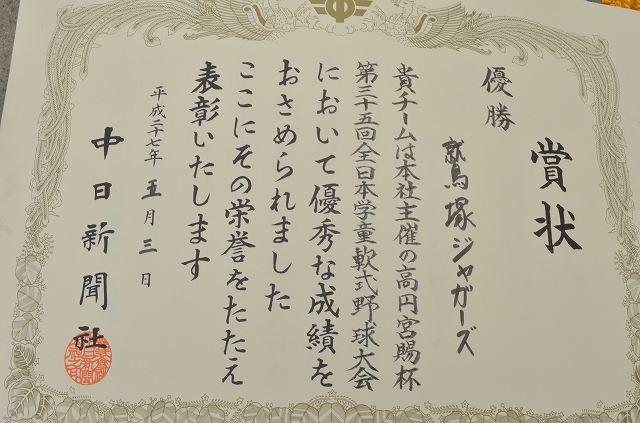 賞状
優勝
鷲塚ジャガーズ
貴チームは本社主催の高円宮賜杯
第三十五回全日本学童軟式野球大会
において優秀な成績を
おさめられました
ここにその栄誉をたたえ
表彰いたします
平成二十七年五月三日
中日新聞社